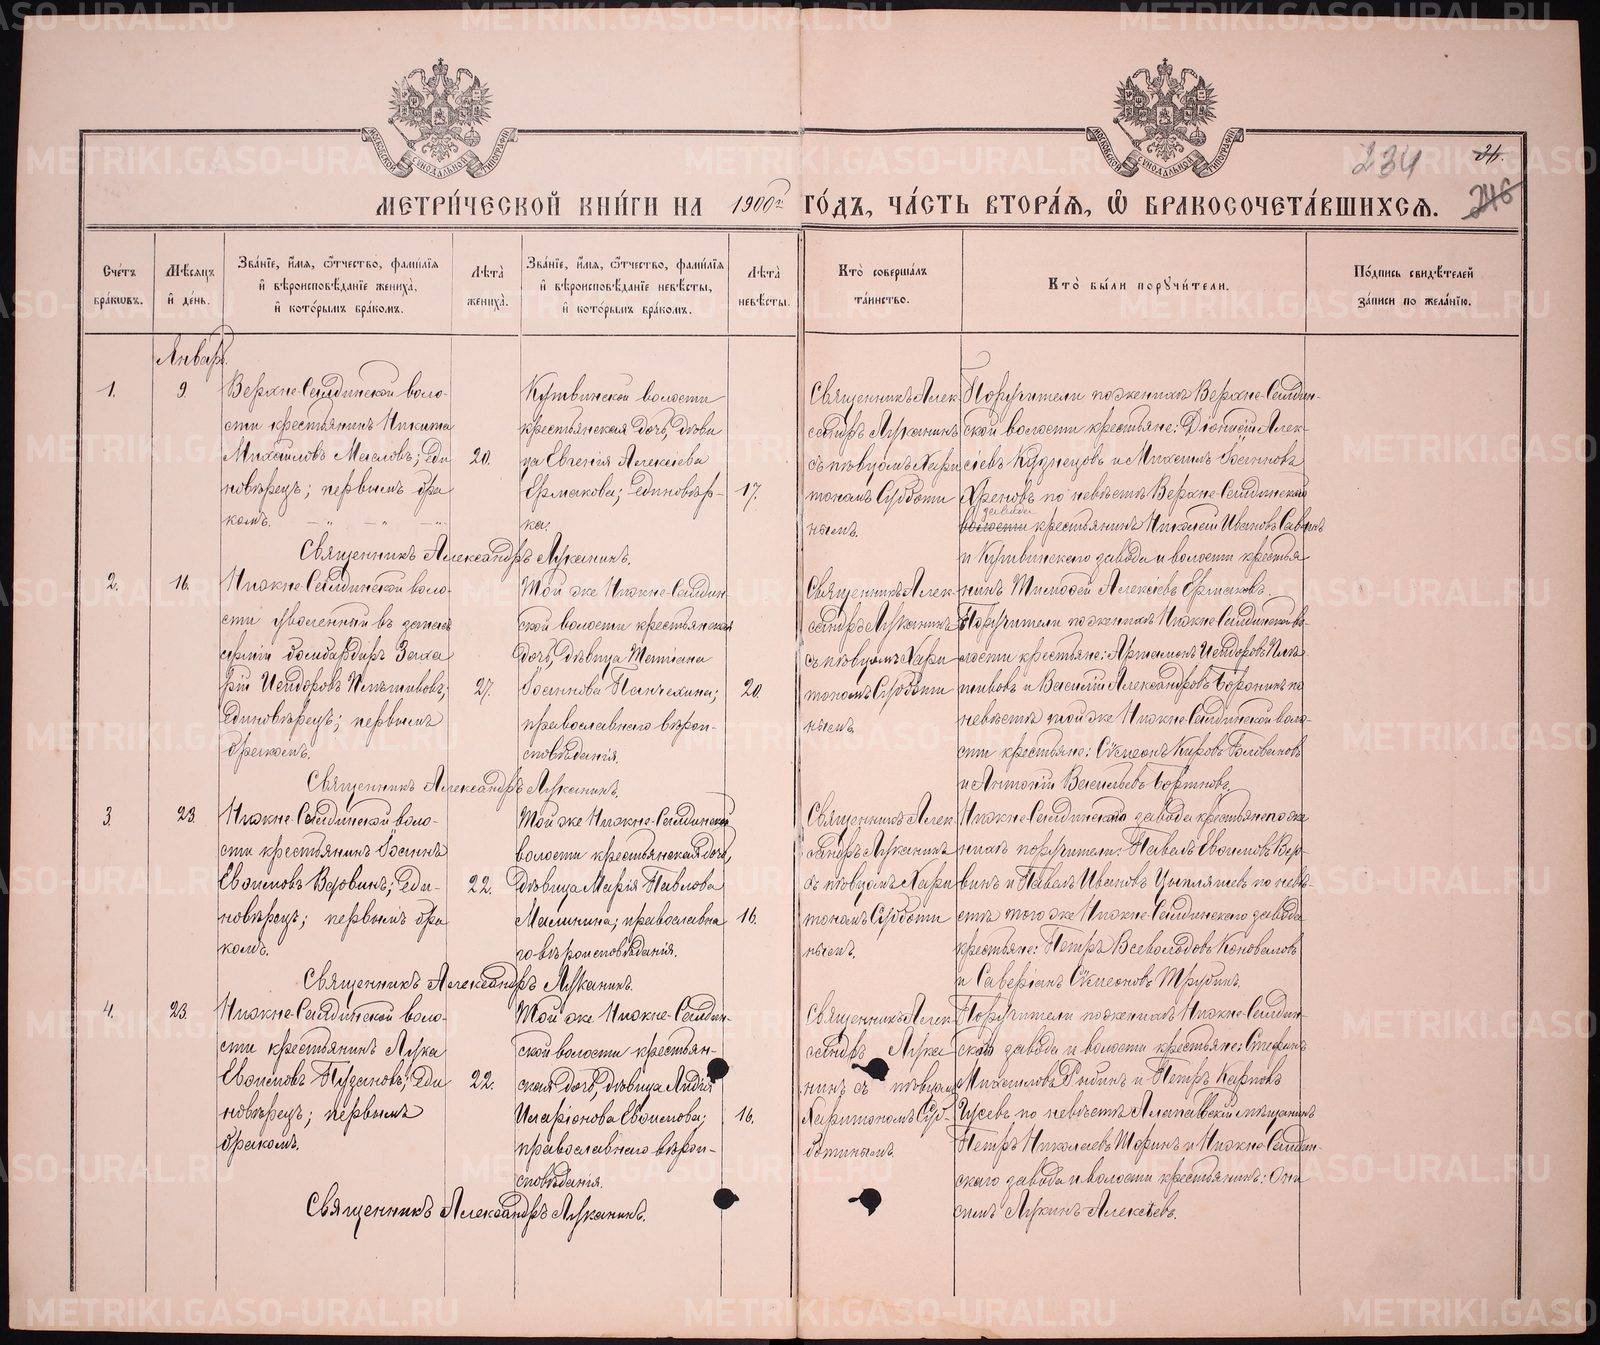 234
26.
246
МЕТРИ́ЧЕСКОЙ КНИ́ГИ НА 1900й ГО́ДЪ, ЧА́СТЬ ВТОРА́Я, Ѡ БРАКОСОЧЕТА́ВШИХСЯ.
Сче́тъ бра́кѡвъ.
Мѣ́сяцъ и҆ де́нь.
Зва́нїе, и҆́мя, ѻ҆́тчество, фами́лїя
и҆ вѣроисповѣ́данїе жениха̀,
и҆ кото́рымъ бра́комъ.
Лѣта̀ жениха̀.
Зва́нїе, и҆́мя, ѻ҆́тчество, фами́лїя
и҆ вѣроисповѣ́данїе невѣ́сты,
и҆ кото́рымъ бра́комъ.
Лѣта̀ невѣ́сты.
Кто̀ соверша́лъ та́инство.
Кто̀ бы́ли поручи́тели.
По́дпись свидѣ́телей
за́писи по жела́нїю.
Январь.
1.
9.
Верхне-Салдинской воло-
сти крестьянинъ Никита
Михайловъ Масловъ; еди
новѣрецъ; первымъ бра
комъ.
20.
Кушвинской волости
крестьянская дочь, дѣви
ца Евгенія Алексѣева
Ермакова; единовѣр-
ка.
17.
Священникъ Алек
сандръ Луканинъ
съ пѣвцомъ Хари
тономъ Субботи
нымъ.
Поручители по женихѣ Верхне-Салдин-
ской волости крестьяне: Діонисій Алек-
сѣевъ Кузнецовъ и Михаилъ Іоанновъ
Хреновъ по невѣстѣ Верхне-Салдинскаго
завода
волости крестьянинъ Николай Ивановъ
и Кушвинскаго завода и волости крестья
нинъ Тимофей Алексѣевъ Ермаковъ.
Священникъ Александръ Луканинъ.
2.
16.
Нижне-Салдинской воло-
сти уволенный въ запасъ
арміи бомбардиръ Заха
рій Исидоровъ
единовѣрецъ; первымъ
бракомъ.
27.
Той же Нижне-Салдин-
ской волости крестьянская
дочь, дѣвица Татіана
Іоаннова Панчехина;
православнаго вѣрои-
сповѣданія.
20.
Священникъ Алек-
сандръ Луканинъ
съ пѣвцомъ Хари
тономъ Субботи
нымъ.
Поручители по женихѣ Нижне-Салдинской во-
лости крестьяне: Артамонъ Исидоровъ
и Василій Александровъ по
невѣстѣ той же Нижне-Салдинской воло-
сти крестьяне: Сѵмеонъ Кировъ Головановъ
и Антоній Васильевъ
Священникъ Александръ Луканинъ.
3.
23.
Нижне-Салдинской воло-
сти крестьянинъ Іоаннъ
Евфимовъ еди-
новѣрецъ; первымъ бра
комъ.
22.
Той же Нижне-Салдинской
волости крестьянская дочь,
дѣвица Марія Павлова
Малинина; православна
го вѣроисповѣданія.
16.
Священникъ Алек-
сандръ Луканинъ
съ пѣвцомъ Хари
тономъ Субботи
нымъ.
Нижне-Салдинскаго завода крестьяне по же
нихѣ поручители: Павелъ Евфимовъ
и Павелъ Ивановъ Цыпляшевъ по невѣ-
стѣ того же Нижне-Салдинскаго завода
крестьяне: Петръ Всеволодовъ Коноваловъ
и Саверіанъ Сѵмеоновъ Трубинъ.
Священникъ Александръ Луканинъ.
4.
23.
Нижне-Салдинской воло-
сти крестьянинъ Лука
Евфимовъ Пузановъ; еди
новѣрецъ; первымъ
бракомъ.
22.
Той же Нижне-Салдин-
ской волости крестьян-
ская дочь, дѣвица Лидія
Иларіонова Евфимова;
православнаго вѣрои-
сповѣданія.
16.
Священникъ Алек-
сандръ Лука
нинъ съ пѣвцомъ
Харитономъ Суб-
ботинымъ.
Поручители по женихѣ Нижне-Салдин-
скаго завода и волости крестьяне: Стефанъ
Михаиловъ и Петръ Карповъ
Гусевъ по невѣстѣ Алапаевскій мѣщанинъ
Петръ Николаевъ Шоринъ и Нижне-Салдин-
скаго завода и волости крестьянинъ: Они
симъ Лукинъ Алексѣевъ.
Священникъ Александръ Луканинъ.
METRIKI.GASO-URAL.RU